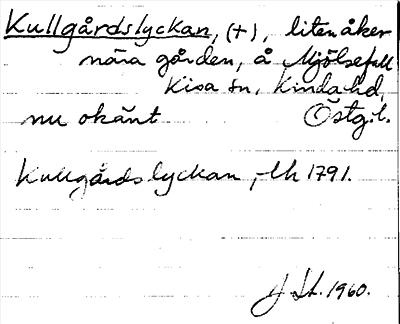 Kullgårdslyckan, (+), liten åker
nära gården, å Mjölsefall
Kisa sn, Kinda hd,
nu okänt Östg:l.
Kullgårdslyckan, lh 1791.
1960.